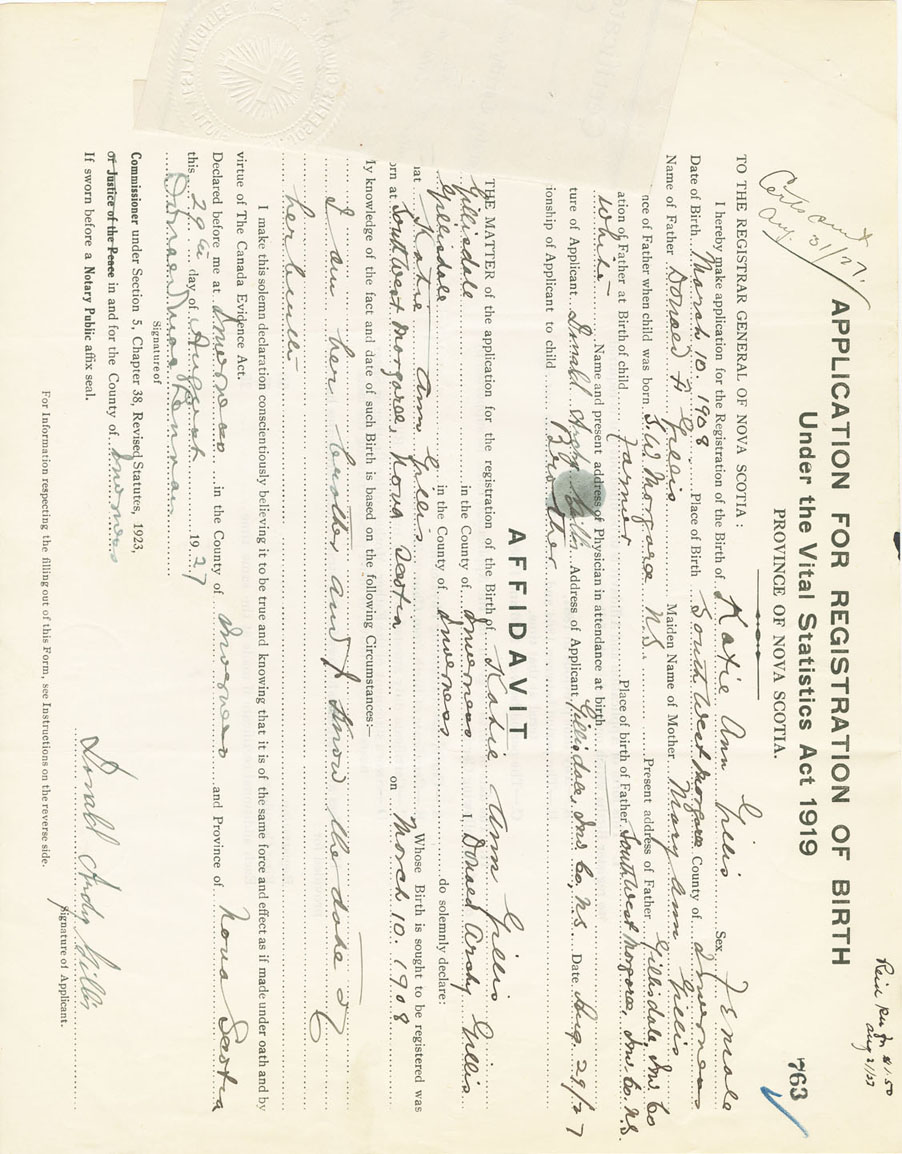 Recd Aug 31/27 $1.50
763
Certs sent
Aug. 31/27
APPLICATION FOR REGISTRATION OF BIRTH
Under the Vital Statistics Act 1919
PROVINCE OF NOVA SCOTIA.
TO THE REGISTRAR GENERAL OF NOVA SCOTIA :
I hereby make application for the Registration of the Birth of Katie Ann Gillis Sex Female
Date of Birth March 10. 1908 Place of Birth South West Margaree County of Inverness
Name of Father Donald A Gillis Maiden Name of Mother Mary Ann Gillis
nce of Father when child was born S.W. Margaree N.S. Present address of Father Gillisdale Inv. Co
ation of Father at Birth of child Farmer Place of birth of Father South West Margaree, Inv. Co. N.S.
White Name and present address of Physician in attendance at birth
ture of Applicant Donald Archy Gillis Address of Applicant Gillisdale, Inv. Co, N.S Date Aug 29/27
ionship of Applicant to child Brother
AFFIDAVIT
THE MATTER of the application for the registration of the Birth of Katie Ann Gillis
Gillisdale in the County of Inverness I, Donald Archy Gillis
Gillisdale in the County of Inverness do solemnly declare:
at Katie Ann Gillis Whose Birth is sought to be registered was
orn at Southwest Margaree, Nova Scotia on March 10. 1908
ly knowledge of the fact and date of such Birth is based on the following Circumstances:—
I am her brother and I know the date of
her birth
I make this solemn declaration conscientiously believing it to be true and knowing that it is of the same force and effect as if made under oath and by
virtue of The Canada Evidence Act.
Declared before me at Inverness in the County of Inverness and Province of Nova Scotia
this 29th day of August 1927
Signature of
Commissioner under Section 5, Chapter 38, Revised Statutes, 1923,
or Justice of the Peace in and for the County of Inverness
If sworn before a Notary Public affix seal.
Donald Archy Gillis
Signature of Applicant.
For Information respecting the filling out of this Form, see Instructions on the reverse side.